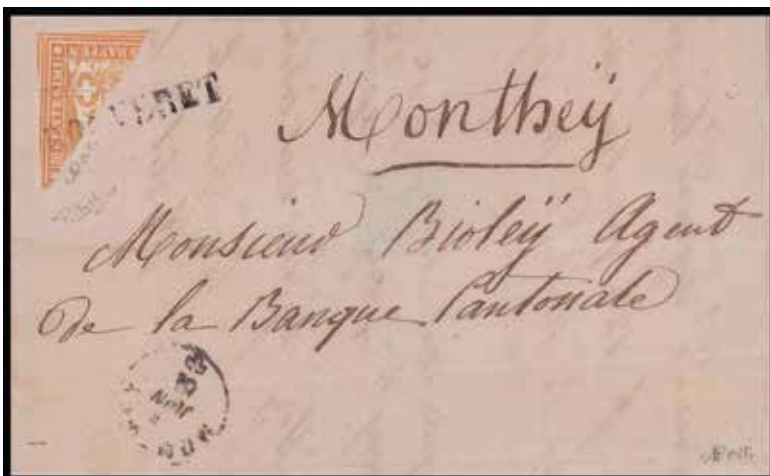 VERET
Montheÿ
Monsieur Bioleÿ Agent
de la Banque Cantonale